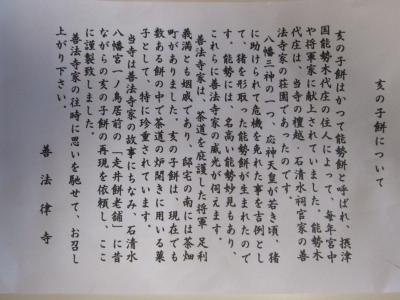 亥の子餅について
亥の子餅はかつて能勢餅と呼ばれ、摂津
国能勢木代の住人によって、毎年宮中
や将軍家に献上されていました。能勢木
代庄は、当寺の檀越、石清水祠官家の善
法寺家の荘園であったのです。
八幡三神の一つ、応神天皇が若き頃、猪
に助けられて危機を免れた事を吉例とし
て、猪を形取った能勢餅が生まれたので
す。能勢には、名高い能勢妙見もあり、
これらに善法寺家の威光が伺えます。
善法寺家は、茶道を庇護した将軍 足利
義満とも姻戚であり、邸宅の南には茶畑
町がありました。亥の子餅は、現在でも
数ある餅の中で茶道の炉開きに用いる菓
子として、特に珍重されています。
当寺は善法寺家の故事にちなみ、石清水
八幡宮一ノ鳥居前の「走井餅老舗」に昔
ながらの亥の子餅の再現を依頼し、ここ
に謹製致しました。
善法寺家の往時に思いを馳せて、お召し
上がり下さい。
善法律寺